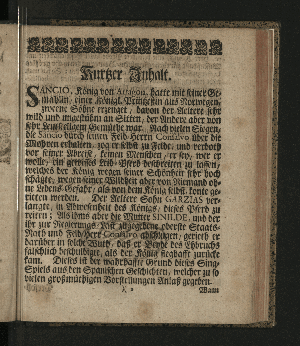 Kurtzer Inhalt.
SANCIO, König von Arragon, hatte mit seiner Ge-
mahlin, einer Königl. Printzeßin aus Norwegen,
zweene Söhne erzeuget, davon der Aeltere sehr
wild und ungestühm an Sitten, der Andere aber von
sehr Gemüthe war. Nach vielen Siegen,
die Sancio durch seinen Feld-Herrn Consalvo über die
Mohren erhalten, zog er selbst zu Felde, und verboth
vor seiner Abreise, keinen Menschen, er sey, wer er
wolle, ein gewisses Leib-Pferd beschreiten zu lassen,
welches der König wegen seiner Schönheit sehr hoch
schätzte, wegen seiner Wildheit aber von Niemand oh-
ne Lebens-Gefahr, als von dem König selbst, konte ge-
ritten werden. Der Aeltere Sohn GARZIAS ver-
langte, in Abwesenheit des Königs, dieses Pferd zu
reiten; Als ihms aber die Mutter SINILDE, und der
ihr zur Regierungs-Last zugegebene oberste Staats-
Rath und Feld-Herr Consalvo abschlugen, gerieth er
darüber in solche Wuth, daß er Beyde des Ehbruchs
fälschlich beschuldiget, als der König sieghafft zurücke
kam. Dieses ist der wahrhaffte Grund dieses Sing-
Spiels aus den Spanischen Geschichten, welcher zu so
vielen großmüthigen Vorstellungen Anlaß gegeben.
Wann